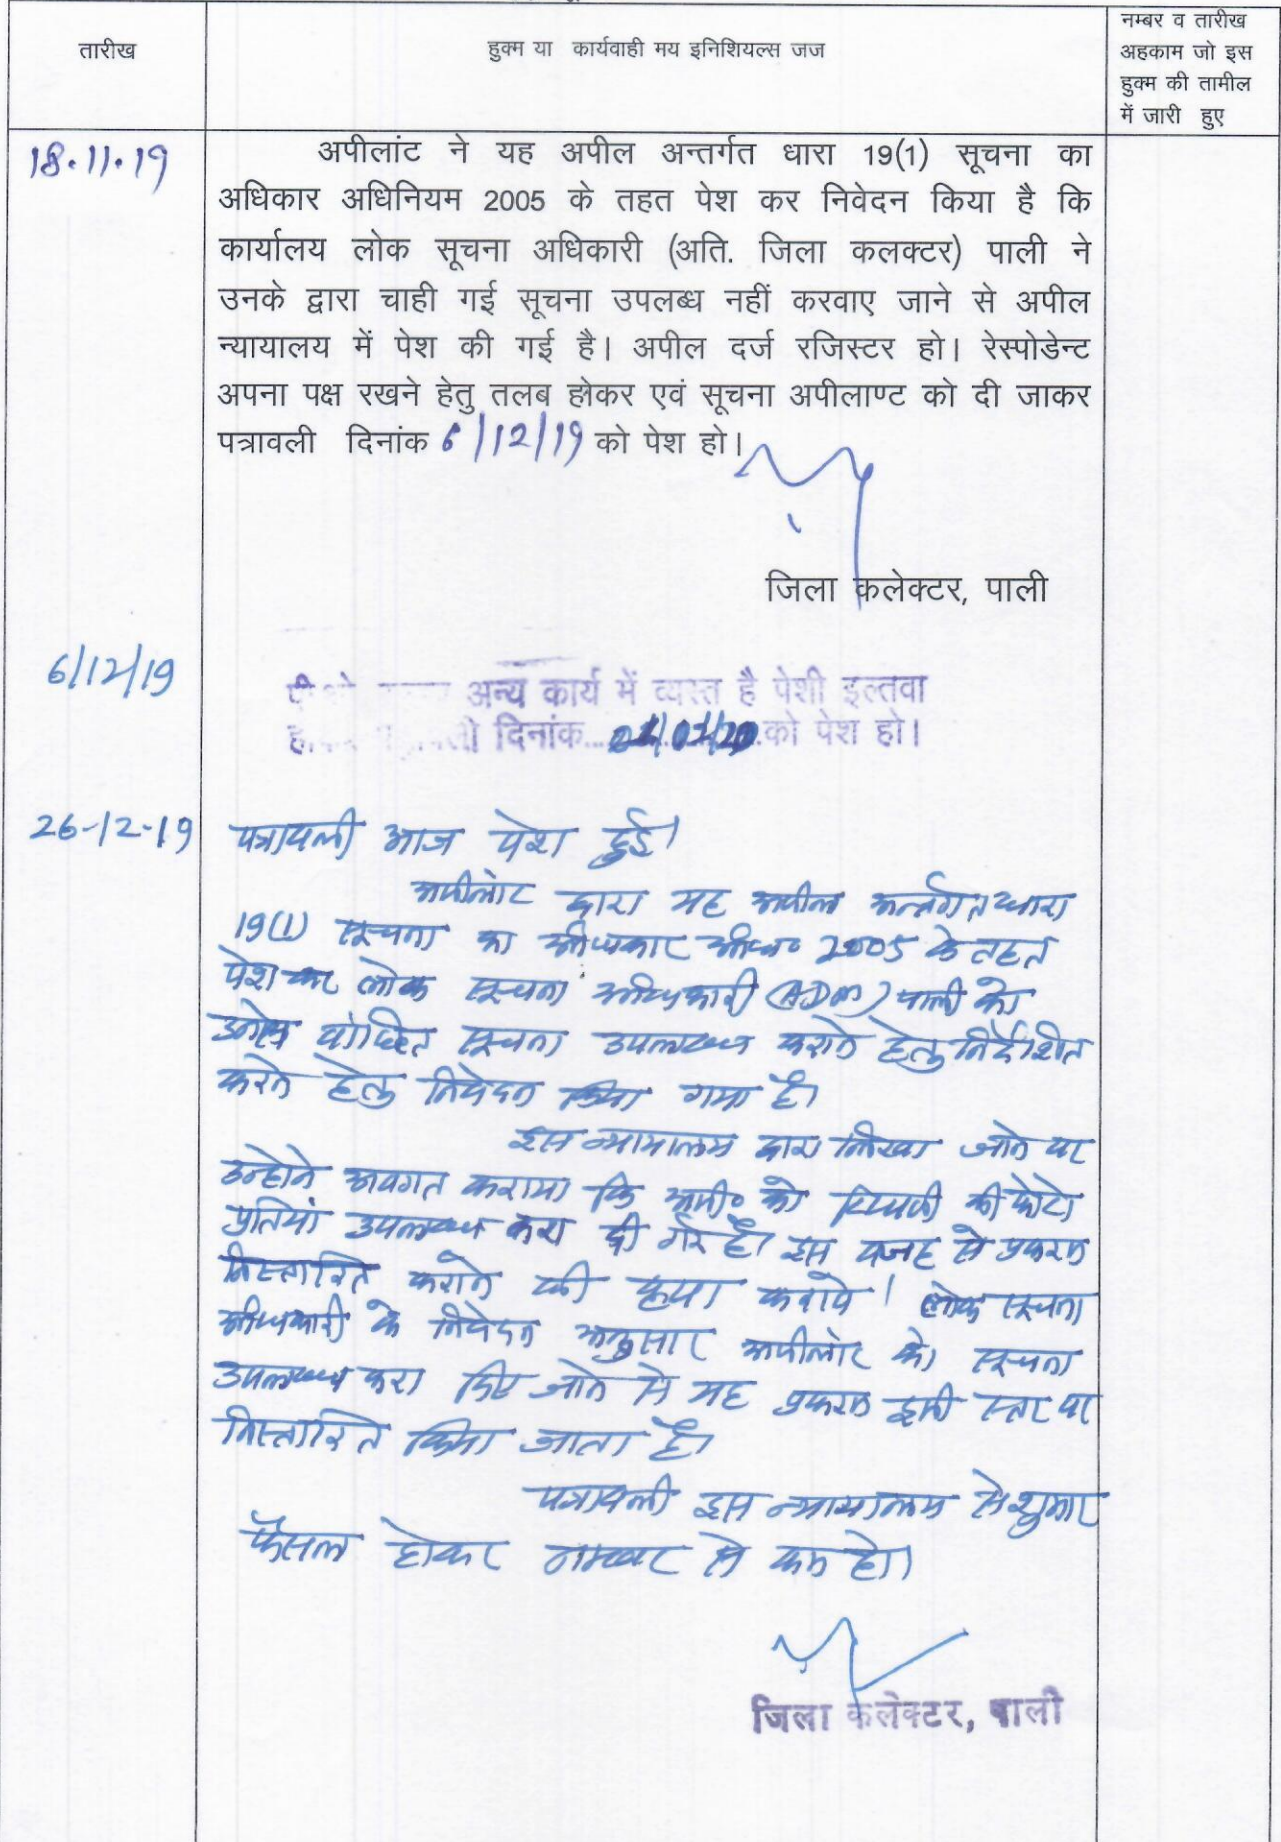 तारीख
हुक्म या कार्यवाही मय इनिशियल्स जज
नम्बर व तारीख
अहकाम जो इस
हुक्म की तामील
में जारी हुए
18.11.19
अपीलांट ने यह अपील अन्तर्गत धारा 19(1) सूचना का
अधिकार अधिनियम 2005 के तहत पेश कर निवेदन किया है कि
कार्यालय लोक सूचना अधिकारी (अति. जिला कलक्टर) पाली ने
उनके द्वारा चाही गई सूचना उपलब्ध नहीं करवाए जाने से अपील
न्यायालय में पेश की गई है। अपील दर्ज रजिस्टर हो। रेस्पोडेन्ट
अपना पक्ष रखने हेतु तलब होकर एवं सूचना अपीलाण्ट को दी जाकर
पत्रावली दिनांक 6/12/19 को पेश हो।
जिला कलेक्टर, पाली
6/12/19
अन्य कार्य में व्यस्त है पेशी इल्तवा
दिनांक को पेश हो।
26-12-19
पत्रावली आज पेश हुई।
अपीलांट द्वारा यह अपील अन्तर्गत धारा
19(1) सूचना का अधिकार अधि० 2005 के तहत
पेश कर लोक सूचना अधिकारी (ADM) पाली को
वांछित सूचना उपलब्ध कराने हेतु निर्देशित
करने हेतु निवेदन किया गया है।
इस न्यायालय द्वारा लिखा जाने पर
उन्होने अवगत कराया कि अपी० को टिप्पणी की फोटो
प्रतियां उपलब्ध करा दी गई है। इस वजह से प्रकरण
निस्तारित कराने की कृपा करावे। लोक सूचना
अधिकारी के निवेदन अनुसार अपीलांट को सूचना
उपलब्ध करा दिए जाने से यह प्रकरण इसी स्तर पर
निस्तारित किया जाता है।
पत्रावली इस न्यायालय से शुमार
फैसल होकर नम्बर से कम हो।
जिला कलेक्टर, पाली